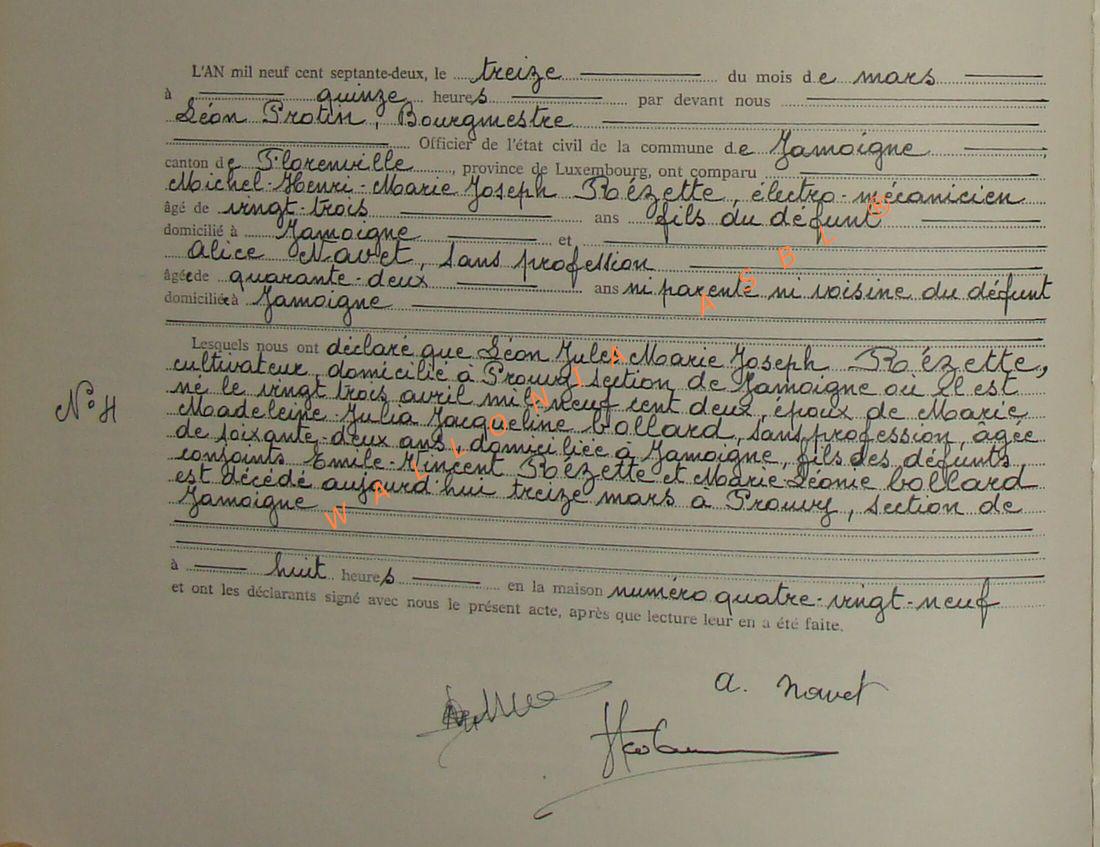 L'AN mil neuf cent septante-deux, le treize du mois de mars
à quinze heures par devant nous
Léon Protin, Bourgmestre
Officier de l'état civil de la commune de Jamoigne
canton de Florenville, province de Luxembourg, ont comparu
Michel-Henri-Marie Joseph Rézette, électro-mécanicien
âgé de vingt-trois ans fils du défunt
domicilié à Jamoigne et
Alice Navet, sans profession
âgée de quarante-deux ans ni parente ni voisine du défunt
domiciliée à Jamoigne
Lesquels nous ont déclaré que Léon Jules Marie Joseph Rézette,
cultivateur, domicilié à Prouvy section de Jamoigne où il est
né le vingt trois avril mil neuf cent deux, époux de Marie
N° 4
Madeleine-Julia Jacqueline Collard, sans profession, âgée
de soixante-deux ans, domiciliée à Jamoigne, fils des défunts
conjoints Emile-Vincent Rézette et Marie Léonie Collard
est décédé aujourd'hui treize mars à Prouvy, section de
Jamoigne
WALLONIA ASBL ®
à huit heures en la maison numéro quatre-vingt-neuf
et ont les déclarants signé avec nous le présent acte, après que lecture leur en a été faite.
a. Navet